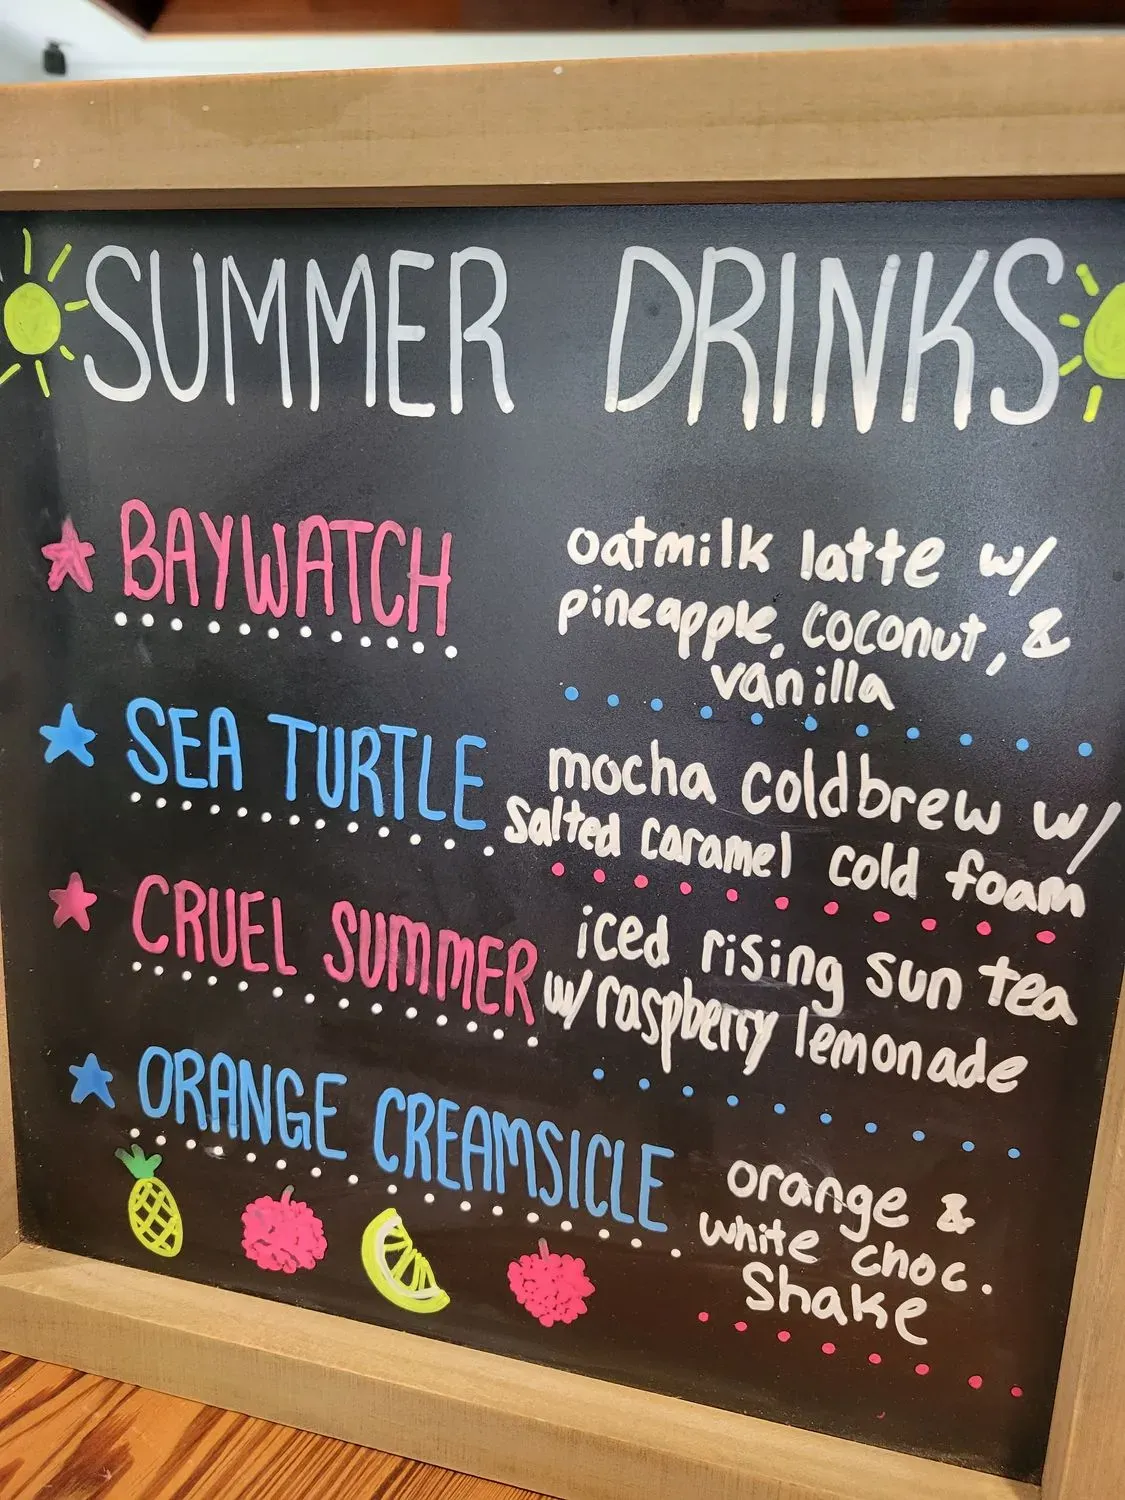 SUMMER DRINKS
BAYWATCH
oatmilk latte w/
pineapple, coconut, &
vanilla
SEA TURTLE
mocha coldbrew w/
salted caramel cold foam
CRUEL SUMMER
iced rising sun tea
w/ raspberry lemonade
ORANGE CREAMSICLE
orange &
white choc.
Shake